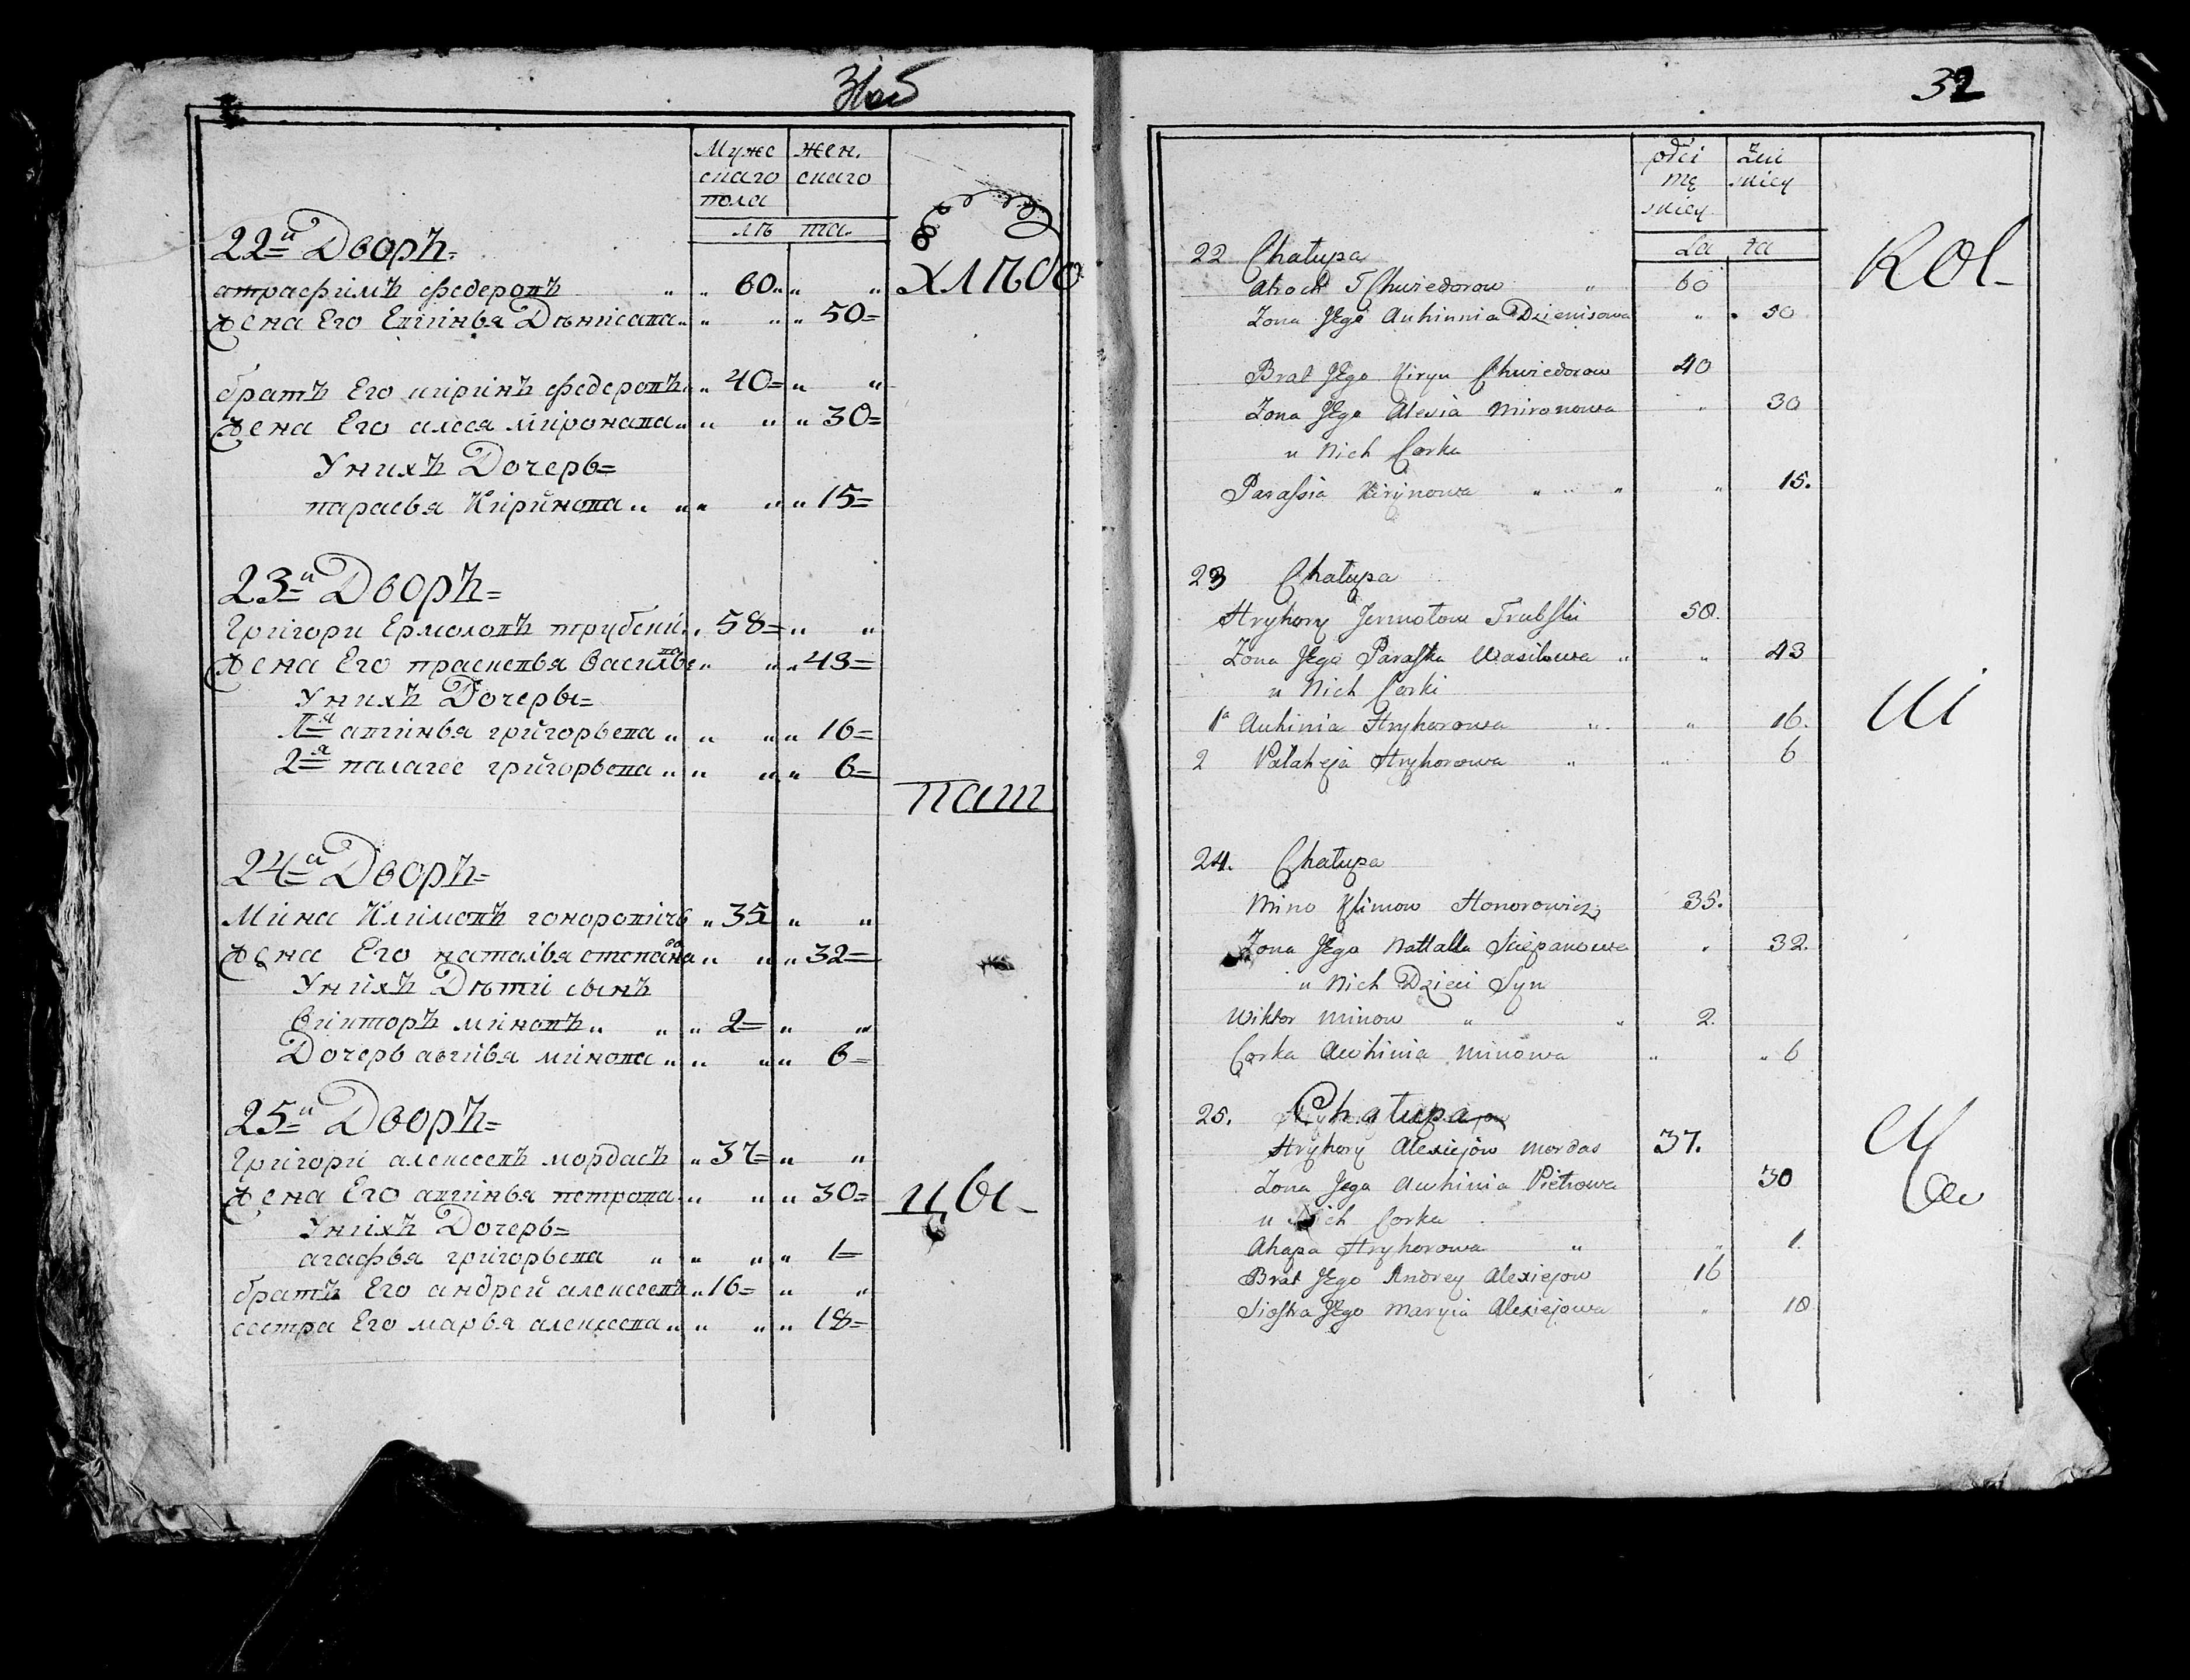 31об
Муже жен.
скаго скаго
пола
лѣ та.
22й Дворъ=
атрасфимъ федеровъ 60
Жена Его Евгинья Дѣнисава 50=
хлѣбо
братъ Его кириꙗъ федеровъ 40=
Жена Его алеся миронава 30=
Унихъ Дочерь=
парасья Кирйнова 15=
23й Дворъ=
Григори Ермоловъ трубски 58=
Жена Его прасковья васильева 43=
Унихъ Дочеры=
1я авгинья григорьева 16=
2я палагее григорьева 6=
паш
24й Дворъ=
Мина Климовъ гоноровичь 35
Жена Его наталья степанова 32=
Унихъ Дѣти сынъ
Викторъ миновъ 2=
Дочерь авгивя минова 6=
25й Дворъ=
Григори алексеевъ мордасъ 37=
Жена Его авгинья петрова 30=
цы-
Унихъ Дочерь=
агафья григорьева 1=
братъ Его андрей алексеевъ 16=
сестра Его марья алексеева 18=
32
płci Żeń
mę skiey
skiey
La ta
22 Chałupa
Chwiedorow 60
Rol-
Zona Jego Auhinnia Dzienisowa 50
Brat Jego Kiryn Chwiedorow 40
Zona Jego Alexia Mironowa 30
u Nich Corka
Parassia Kirynowa 15.
23 Chałupa
Hryhory Jermołow Trubski 58.
Zona Jego Paraska Wasilowa 43
u Nich Corki
1a Auhinia Hryhorowa 16.
2 Pałaheja Hryhorowa 6
ni
24. Chałupa
Mino Klimow Honorowicz 35.
Zona Jego Nattalla Sciepanowa 32.
u Nich Dzieci Syn
Wiktor Minow 2.
Corka Awhinia Minowa 6
25. Chałupa
Hryhory Alexiejow Mordas 37.
Zona Jego Awhinia Pietrowa 30
u Nich Corka
Ahapa Hryhorowa 1.
Brat Jego Andrey Alexiejow 16
Siostra Jego Maryia Alexiejowa 18